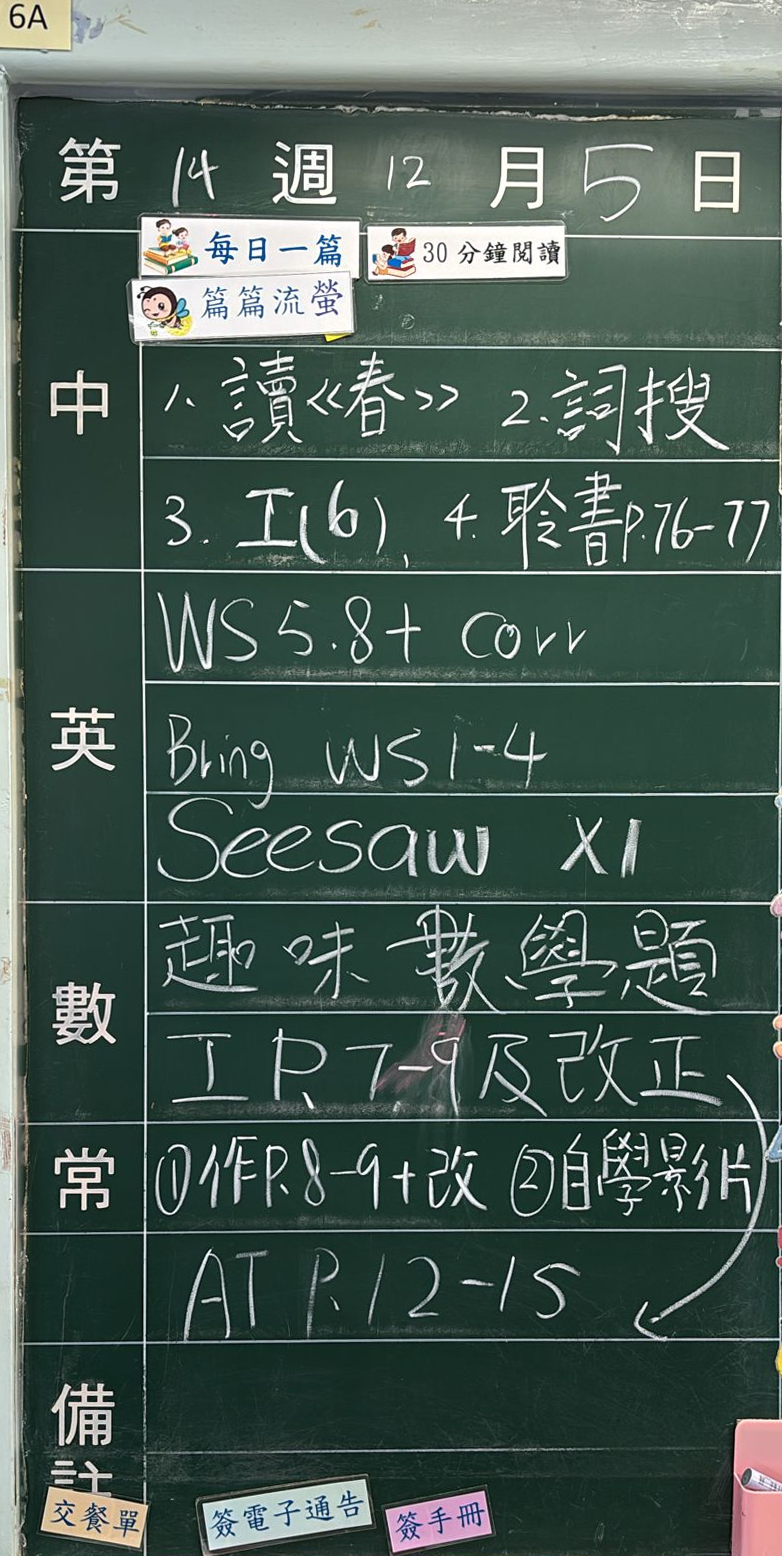 6A
第 14 週 12 月 5 日
每日一篇 30分鐘閱讀
篇篇流螢
中
1. 讀《春》 2. 詞搜
3. 工(6), 4. 聆書P.76-77
英
WS 5.8+ Corr
Bring WS 1-4
Seesaw X1
數
趣味數學題
工 P. 7-9及改正
常
①作P.8-9+改 ②自學影片
AT P.12-15
備註
交餐單 簽電子通告 簽手冊